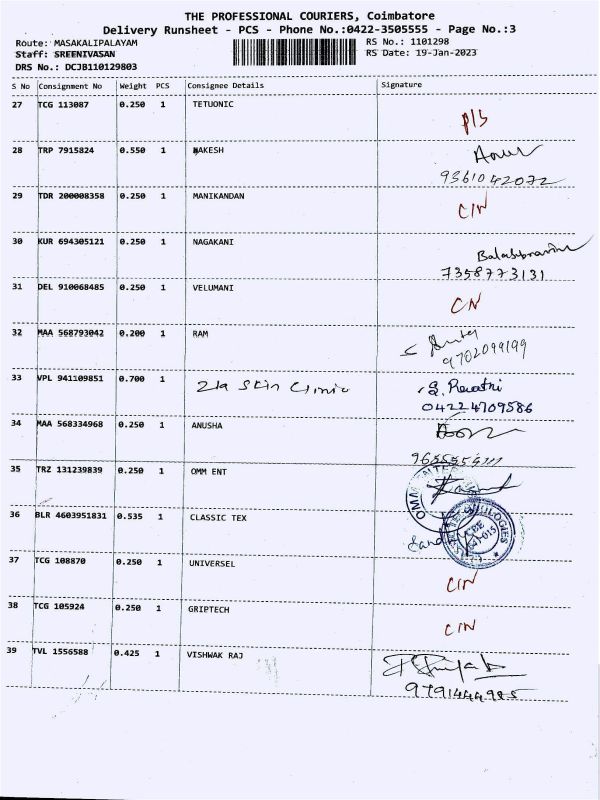 THE PROFESSIONAL COURIERS, Coimbatore
Delivery Runsheet - PCS - Phone No.:0422-3505555 - Page No.:3
Route: MASAKALIPALAYAM
RS No.: 1101298
Staff: SREENIVASAN
RS Date: 19-Jan-2023
DRS No.: DCJB110129803
S No Consignment No Weight PCS Consignee Details Signature
27 TCG 113087 0.250 1 TETUONIC
28 TRP 7915824 0.550 1 RAKESH
9361042072
29 TDR 200008358 0.250 1 MANIKANDAN CIN
30 KUR 694305121 0.250 1 NAGAKANI
7358773131
31 DEL 910068485 0.250 1 VELUMANI CN
32 MAA 568793042 0.200 1 RAM
9702099199
33 VPL 941109851 0.700 1 Zla Skin Clinic
04224709586
34 MAA 568334968 0.250 1 ANUSHA
35 TRZ 131239839 0.250 1 OMM ENT
36 BLR 4603951831 0.535 1 CLASSIC TEX
37 TCG 108870 0.250 1 UNIVERSEL CIN
38 TCG 105924 0.250 1 GRIPTECH CIN
39 TVL 1556588 0.425 1 VISHWAK RAJ
9791444985